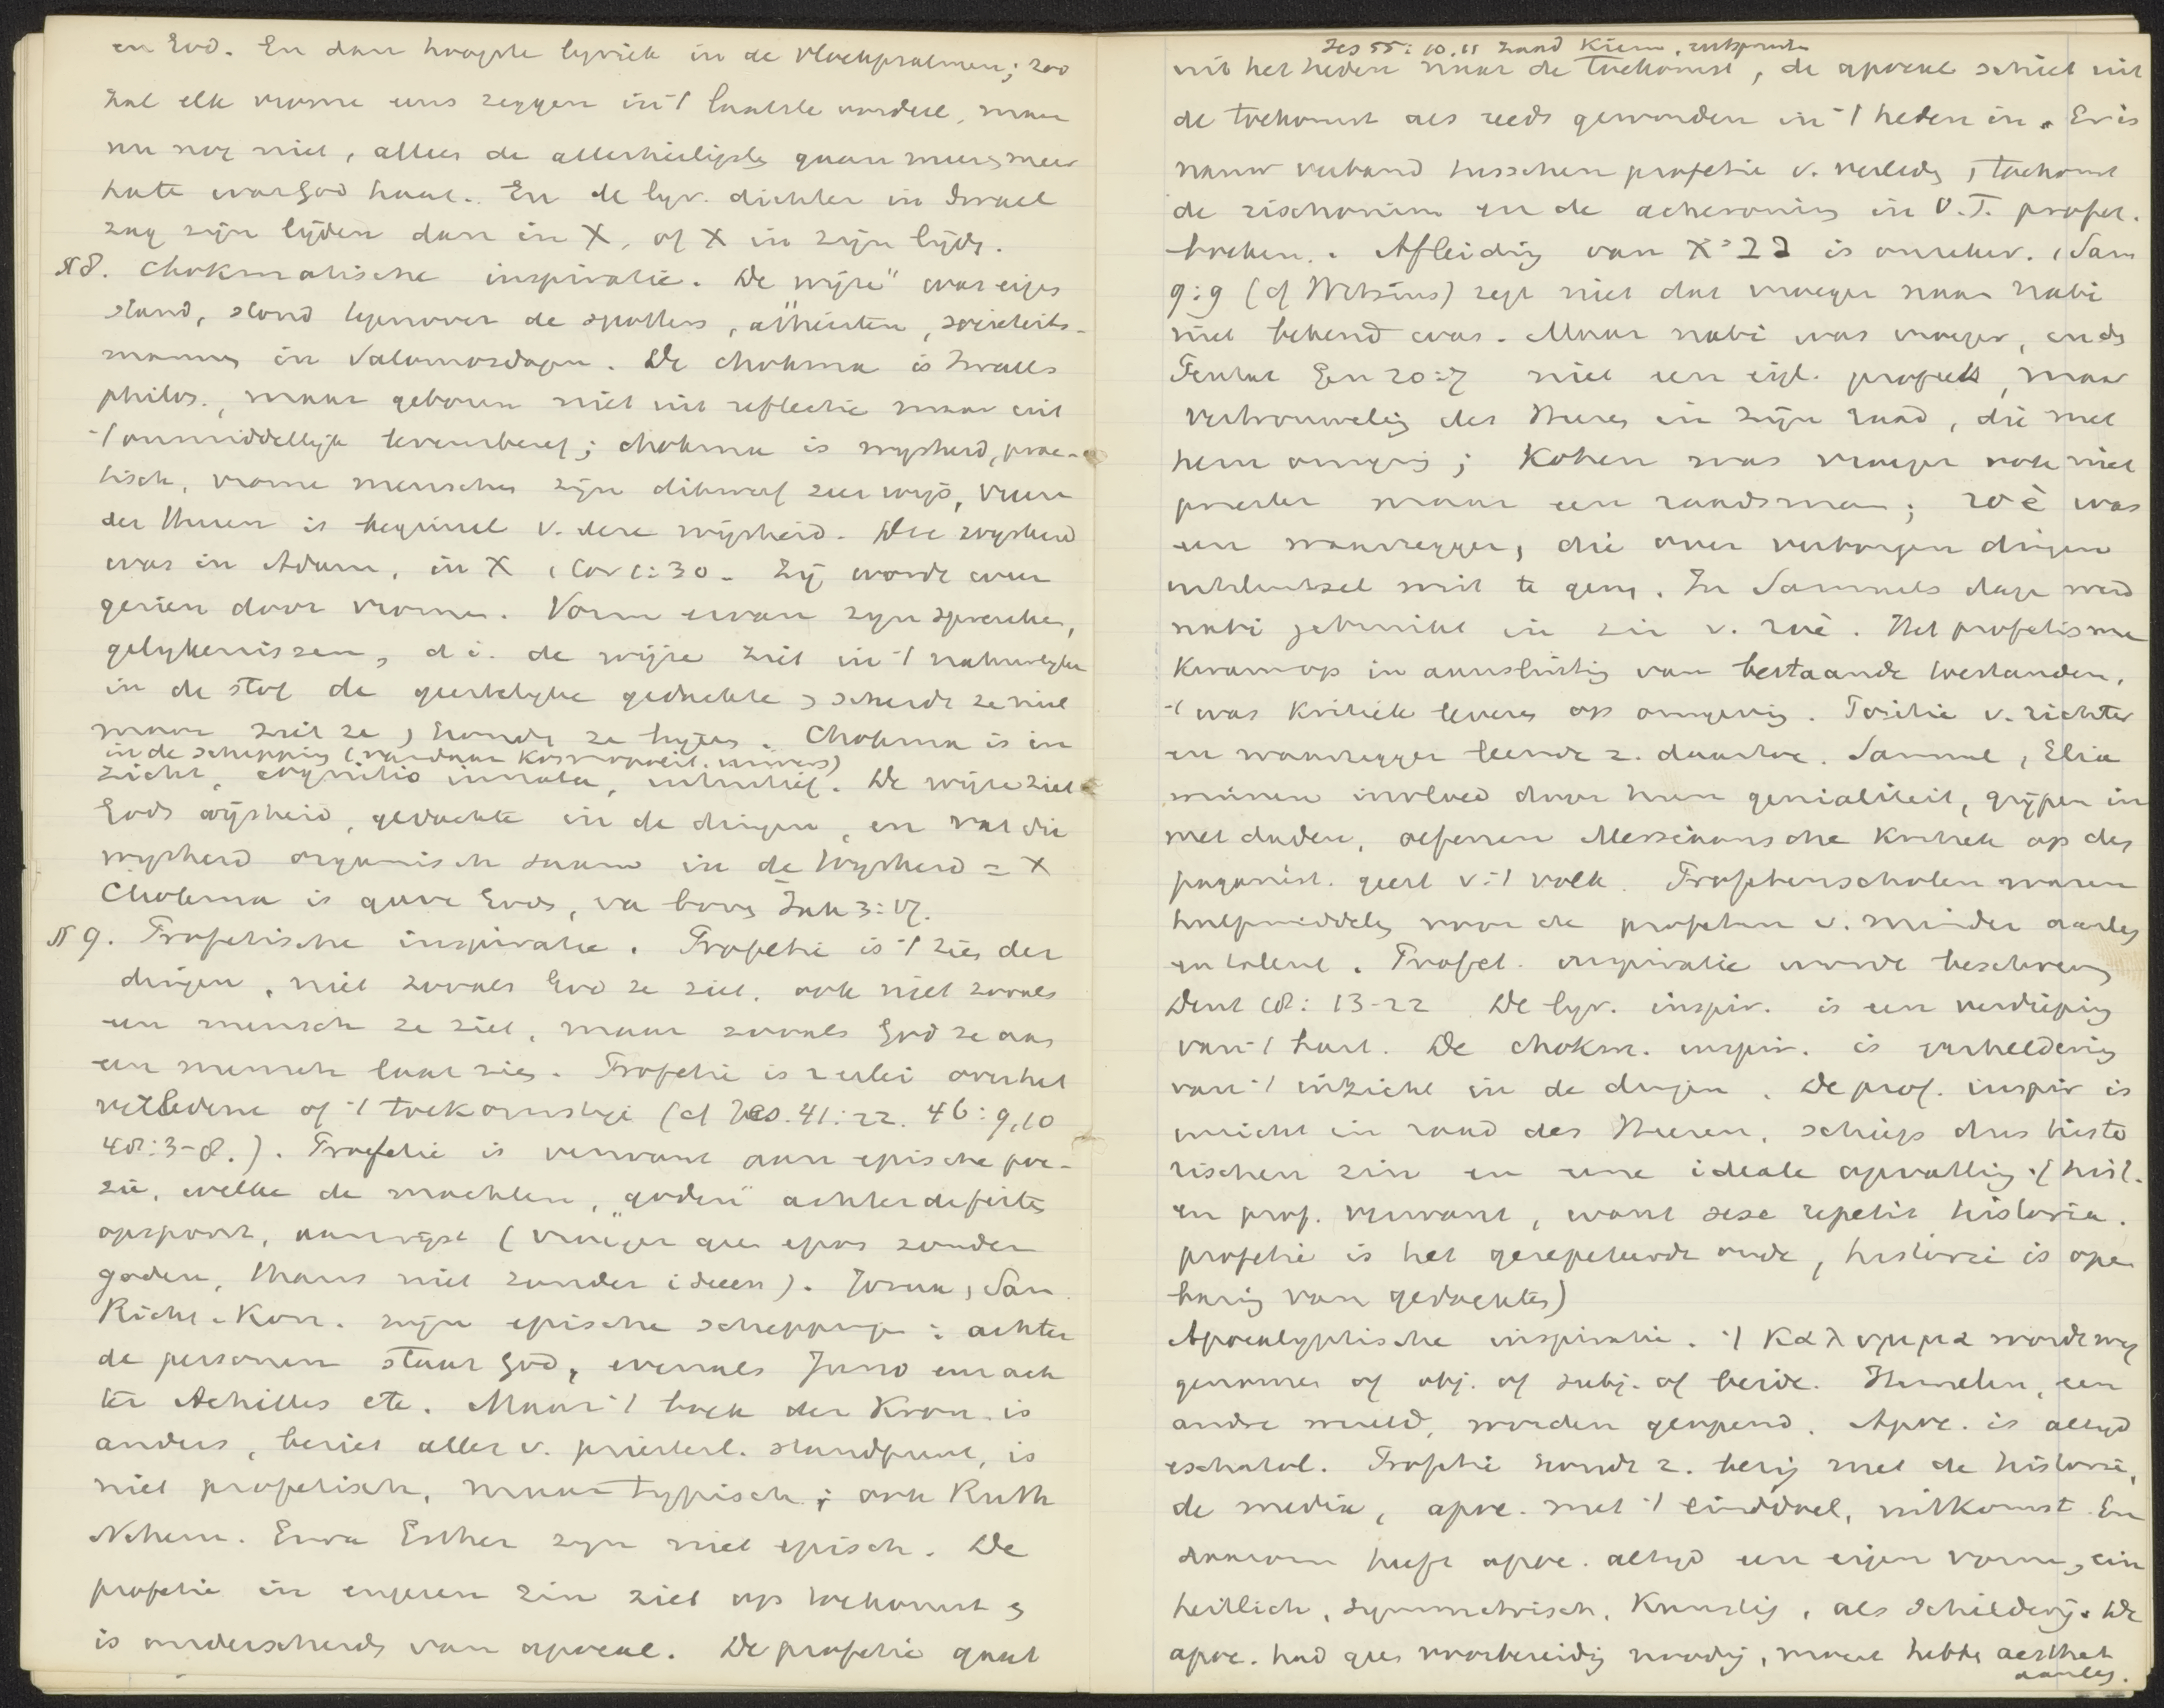 en God. En dan hoogste lyriek in de vloekpsalmen; zoo
zal elk vrome eens zeggen in 't laatste oordeel, maar
nu nog niet, alleen de allerheiligste gaan meer en meer
haten wat God haat. En de lyr. dichter in Israel
zag zijn lijden dan in X, of X in zijn lijden.
§ 8. Chokmatische inspiratie. De "wijze" was eigen
stand, stond tegenover de spotters, atheisten, societeits-
mannen in Salomo's dagen. De chokma is Israels
philos., maar geboren niet uit reflectie maar uit
't onmiddellijk levensbesef; chokma is wijsheid, prac-
tisch, vrome menschen zijn dikwerf zeer wijs, vreeze
des Heeren is beginsel v. deze wijsheid. Die wijsheid
was in Adam, in X 1 Cor 1:30. Zij wordt weer
gezien door vromen. Vorm ervan zijn spreuken,
gelijkenissen, d.i. de wijze ziet in 't natuurlijke
in de stof de geestelijke gedachte en scheidt ze niet
maar ziet ze en houdt ze bijeen. Chokma is in
in de schepping (vandaar kosmopolit. univers)
zicht, cognitio innata, intuitief. De wijze ziet
Gods wijsheid, gedachte in de dingen, en vat die
wijsheid organisch saam in de Wijsheid = X
Chokma is gave Gods, van boven Jak 3:17.
§ 9. Profetische inspiratie. Profetie is 't zien der
dingen, niet zooals God ze ziet, ook niet zooals
een mensch ze ziet, maar zooals God ze aan
een mensch laat zien. Profetie is 2erlei over het
verledene of 't toekomstige (cf Jes. 41:22. 46:9,10
48:3-8.). Profetie is verwant aan epische poë-
zie, welke de machten, "goden" achter de feiten
opspoort, aanwijst (vroeger geen epos zonder
goden, thans niet zonder ideeen). Jozua, Sam
Richt. Kon. zijn epische scheppingen: achter
de personen staat God, evenals Juno enz ach
ter Achilles etc. Maar 't boek der Kron. is
anders, beziet alles v. priesterl. standpunt, is
niet profetisch, maar typisch; ook Ruth
Nehem. Ezra Esther zijn niet episch. De
profetie in engeren zin ziet op toekomst en
is onderscheiden van apocal. De profetie gaat
Jes 55:10,11 zaad kiem, uitspruit
uit het heden naar de toekomst, de apocal schiet uit
de toekomst als reeds geworden in 't heden in. Er is
nauw verband tusschen profetie v. verleden en toekomst
de rischonim en de acheronim in O.T. profet.
boeken. Afleiding van נביא is onzeker. 1 Sam
9:9 (cf Witsius) zegt niet dat vroeger naam nabi
niet bekend was. Maar nabi was vroeger, in den
Pentat Gen 20:7 niet een eigl. profeet, maar
vertrouweling des Heeren in zijn raad, die met
hem omging; Kohen was vroeger ook niet
priester maar een raadsman; roè was
een waarzegger, die over verborgen dingen
uitsluitsel wist te geven. In Samuels dagen werd
nabi gebruikt in zin v. roè. Het profetisme
kwam op in aansluiting van bestaande toestanden,
't was kritiek leveren op omgeving. Positie v. richter
en waarzegger leende z. daartoe. Samuel, Elia
winnen invloed door hun genialiteit, grijpen in
met daden, oefenen Messiaansche kritiek op den
paganist. geest v. 't volk. Profetenscholen waren
hulpmiddelen voor de profeten v. minder aanleg
en talent. Profet. inspiratie wordt beschreven
Deut 18:13-22 De lyr. inspir. is een verdieping
van 't hart. De chokm. inspir. is verheldering
van 't inzicht in de dingen. De prof. inspir is
inzicht in raad des Heeren, schiep dus histo
rischen zin en eene ideale opvatting (hist.
en prof. verwant, want sese repetit historia.
profetie is het gerepeteerde oude, historie is open
baring van gedachten)
Apocalyptische inspiratie. 't καλυμμα wordt weg
genomen of obj. of subj. of beide. Hemelen, een
andre wereld, worden geopend. Apoc. is altijd
eschatol. Profetie houdt z. bezig met de historie,
de media, apoc. met 't einddoel, uitkomst. En
daarom heeft apoc. altijd een eigen vorm, ein
heitlich, symmetrisch, kunstig, als schilderij. De
apoc. had geen voorbereiding noodig, moest hebben aesthet
aanleg.